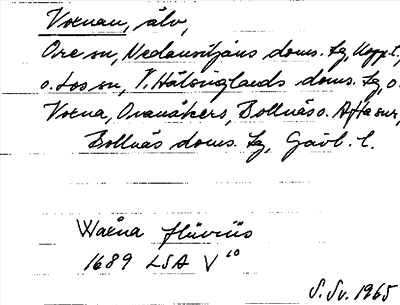 Voxnan, älv,
Ore sn, Nedansiljans doms. tg, Kopp. l.,
o. Los sn, V. Hälsinglands doms. tg, o.
Voxna, Ovanåkers, Bollnäs o. Arfta snr,
Bollnäs doms. tg, Gävl. l.
Waxna flüviüs
1689 LSA V 10
S. Sv. 1965